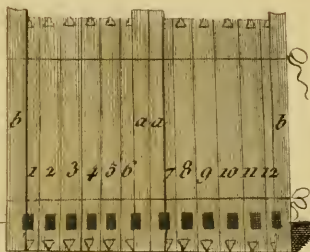 b a a b
1 2 3 4 5 6 7 8 9 10 11 12